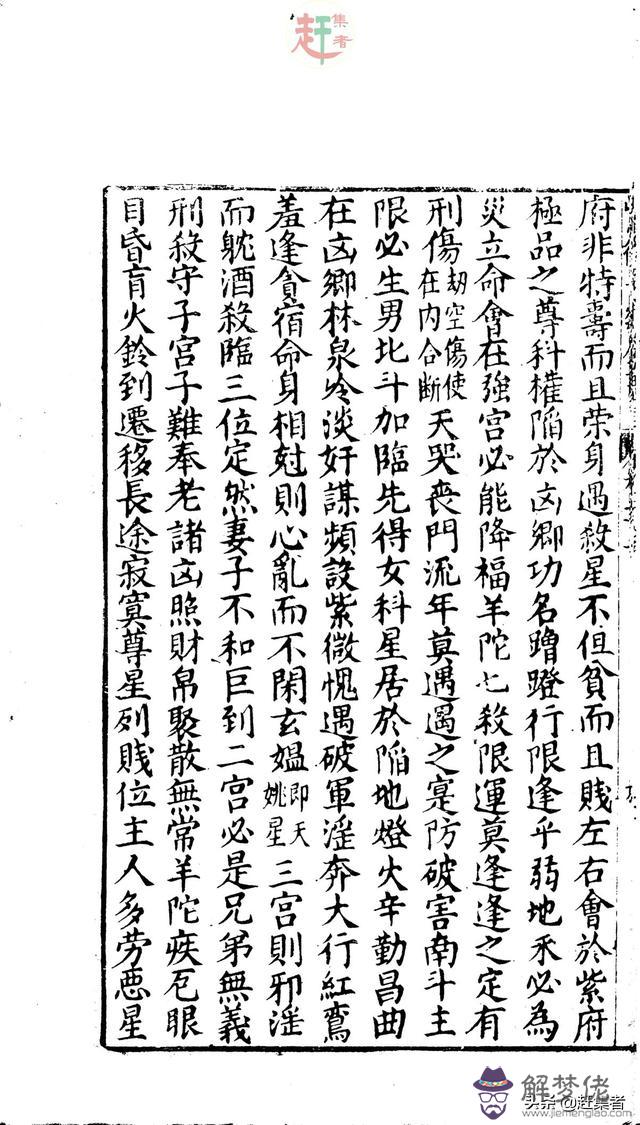 赶集者
府非特壽而且荣身遇殺星不但貧而且賎左右會於紫府
極品之尊科權陷於凶鄉功名蹭蹬行限逢乎弱地未必為
災立命會在強宮必能降福羊陀七殺限運莫逢逢之定有
刑傷劫空傷使在内合断天哭喪門流年莫遇遇之寔防破害南斗主
限必生男北斗加臨先得女科星居於陷地燈火辛勤昌曲
在凶鄉林泉冷淡奸謀頻設紫微愧遇破軍淫奔大行紅鸞
羞逢貪宿命身相尅則心亂而不閑玄媪即天姚星三宮則邪淫
而躭酒殺臨三位定然妻子不和巨到二宮必是兄弟無義
刑殺守子宮子難奉老諸凶照財帛聚散無常羊陀疾厄眼
目昏盲火鈴到遷移長途寂寞尊星列賎位主人多劳恶星
解梦佬
www.jiemenglao.com
头条@赶集者